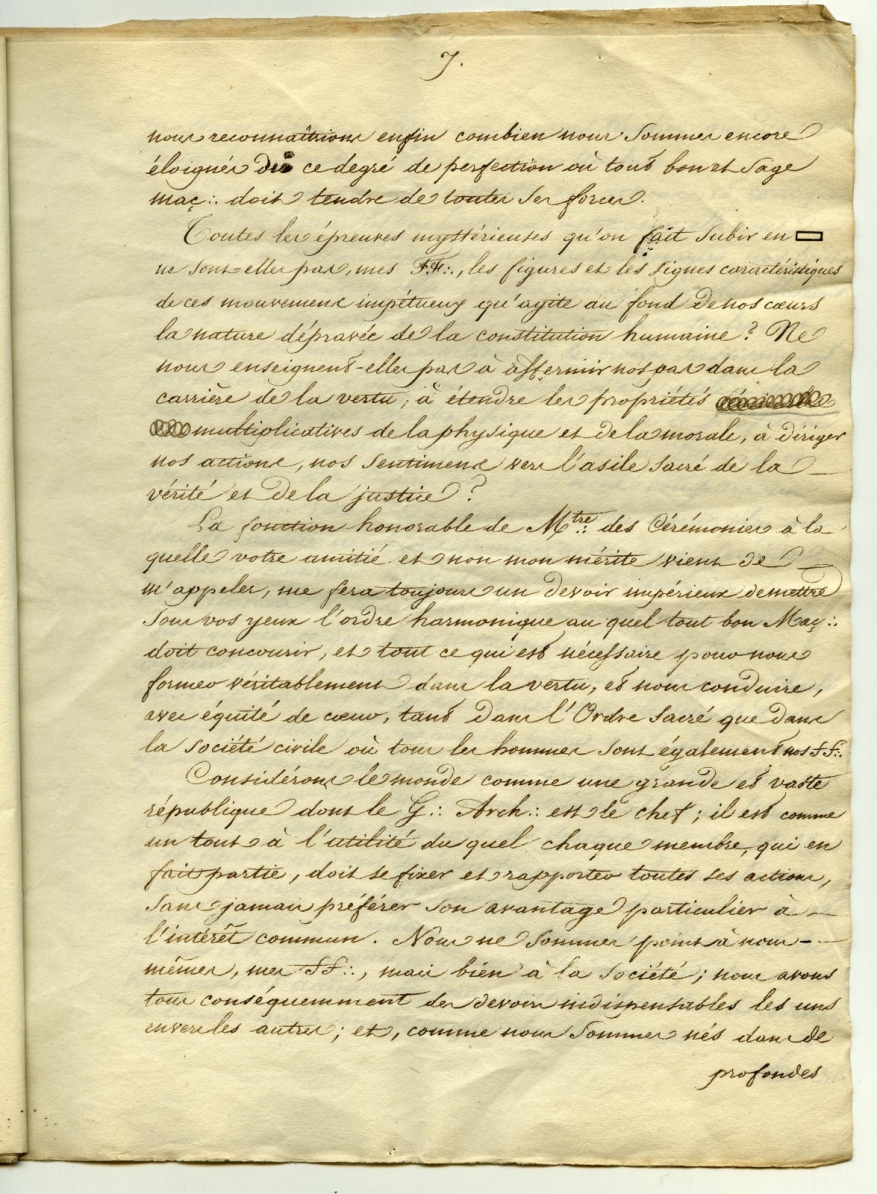 7.
nous reconnaîtrions enfin combien nous sommes encore
éloignés de ce degré de perfection où tout bon et sage
maç∴ doit tendre de toutes ses forces.
Toutes les épreuves mystérieuses qu'on fait subir en ▭
ne sont-elles pas, mes FF∴, les figures et les signes caractéristiques
de ces mouvemens impétueux qu'agite au fond de nos cœurs
la nature dépravée de la constitution humaine? Ne
nous enseignent-elles pas à affermir nos pas dans la
carrière de la vertu, à étendre les propriétés
multiplicatives de la physique et de la morale, à diriger
nos actions, nos sentimens vers l'asile sacré de la
vérité et de la justice?
La fonction honorable de Mtre∴ des Cérémonies à la
quelle votre amitié et non mon mérite vient de
m'appeler, me fera toujours un devoir impérieux de mettre
sous vos yeux l'ordre harmonique au quel tout bon Maç∴
doit concourir, et tout ce qui est nécessaire pour nous
former véritablement dans la vertu, et nous conduire,
avec équité de cœur, tant dans l'Ordre sacré que dans
la société civile où tous les hommes sont également nos FF∴
Considérons le monde comme une grande et vaste
république dont le G∴ Arch∴ est le chef; il est comme
un tout à l'utilité du quel chaque membre, qui en
fait partie, doit se fixer et rapporter toutes ses actions,
sans jamais préférer son avantage particulier à
l'intérêt commun. Nous ne sommes point à nous-
mêmes, mes FF∴, mais bien à la société; nous avons
tous conséquemment des devoirs indispensables les uns
envers les autres; et, comme nous sommes nés dans de
profondes